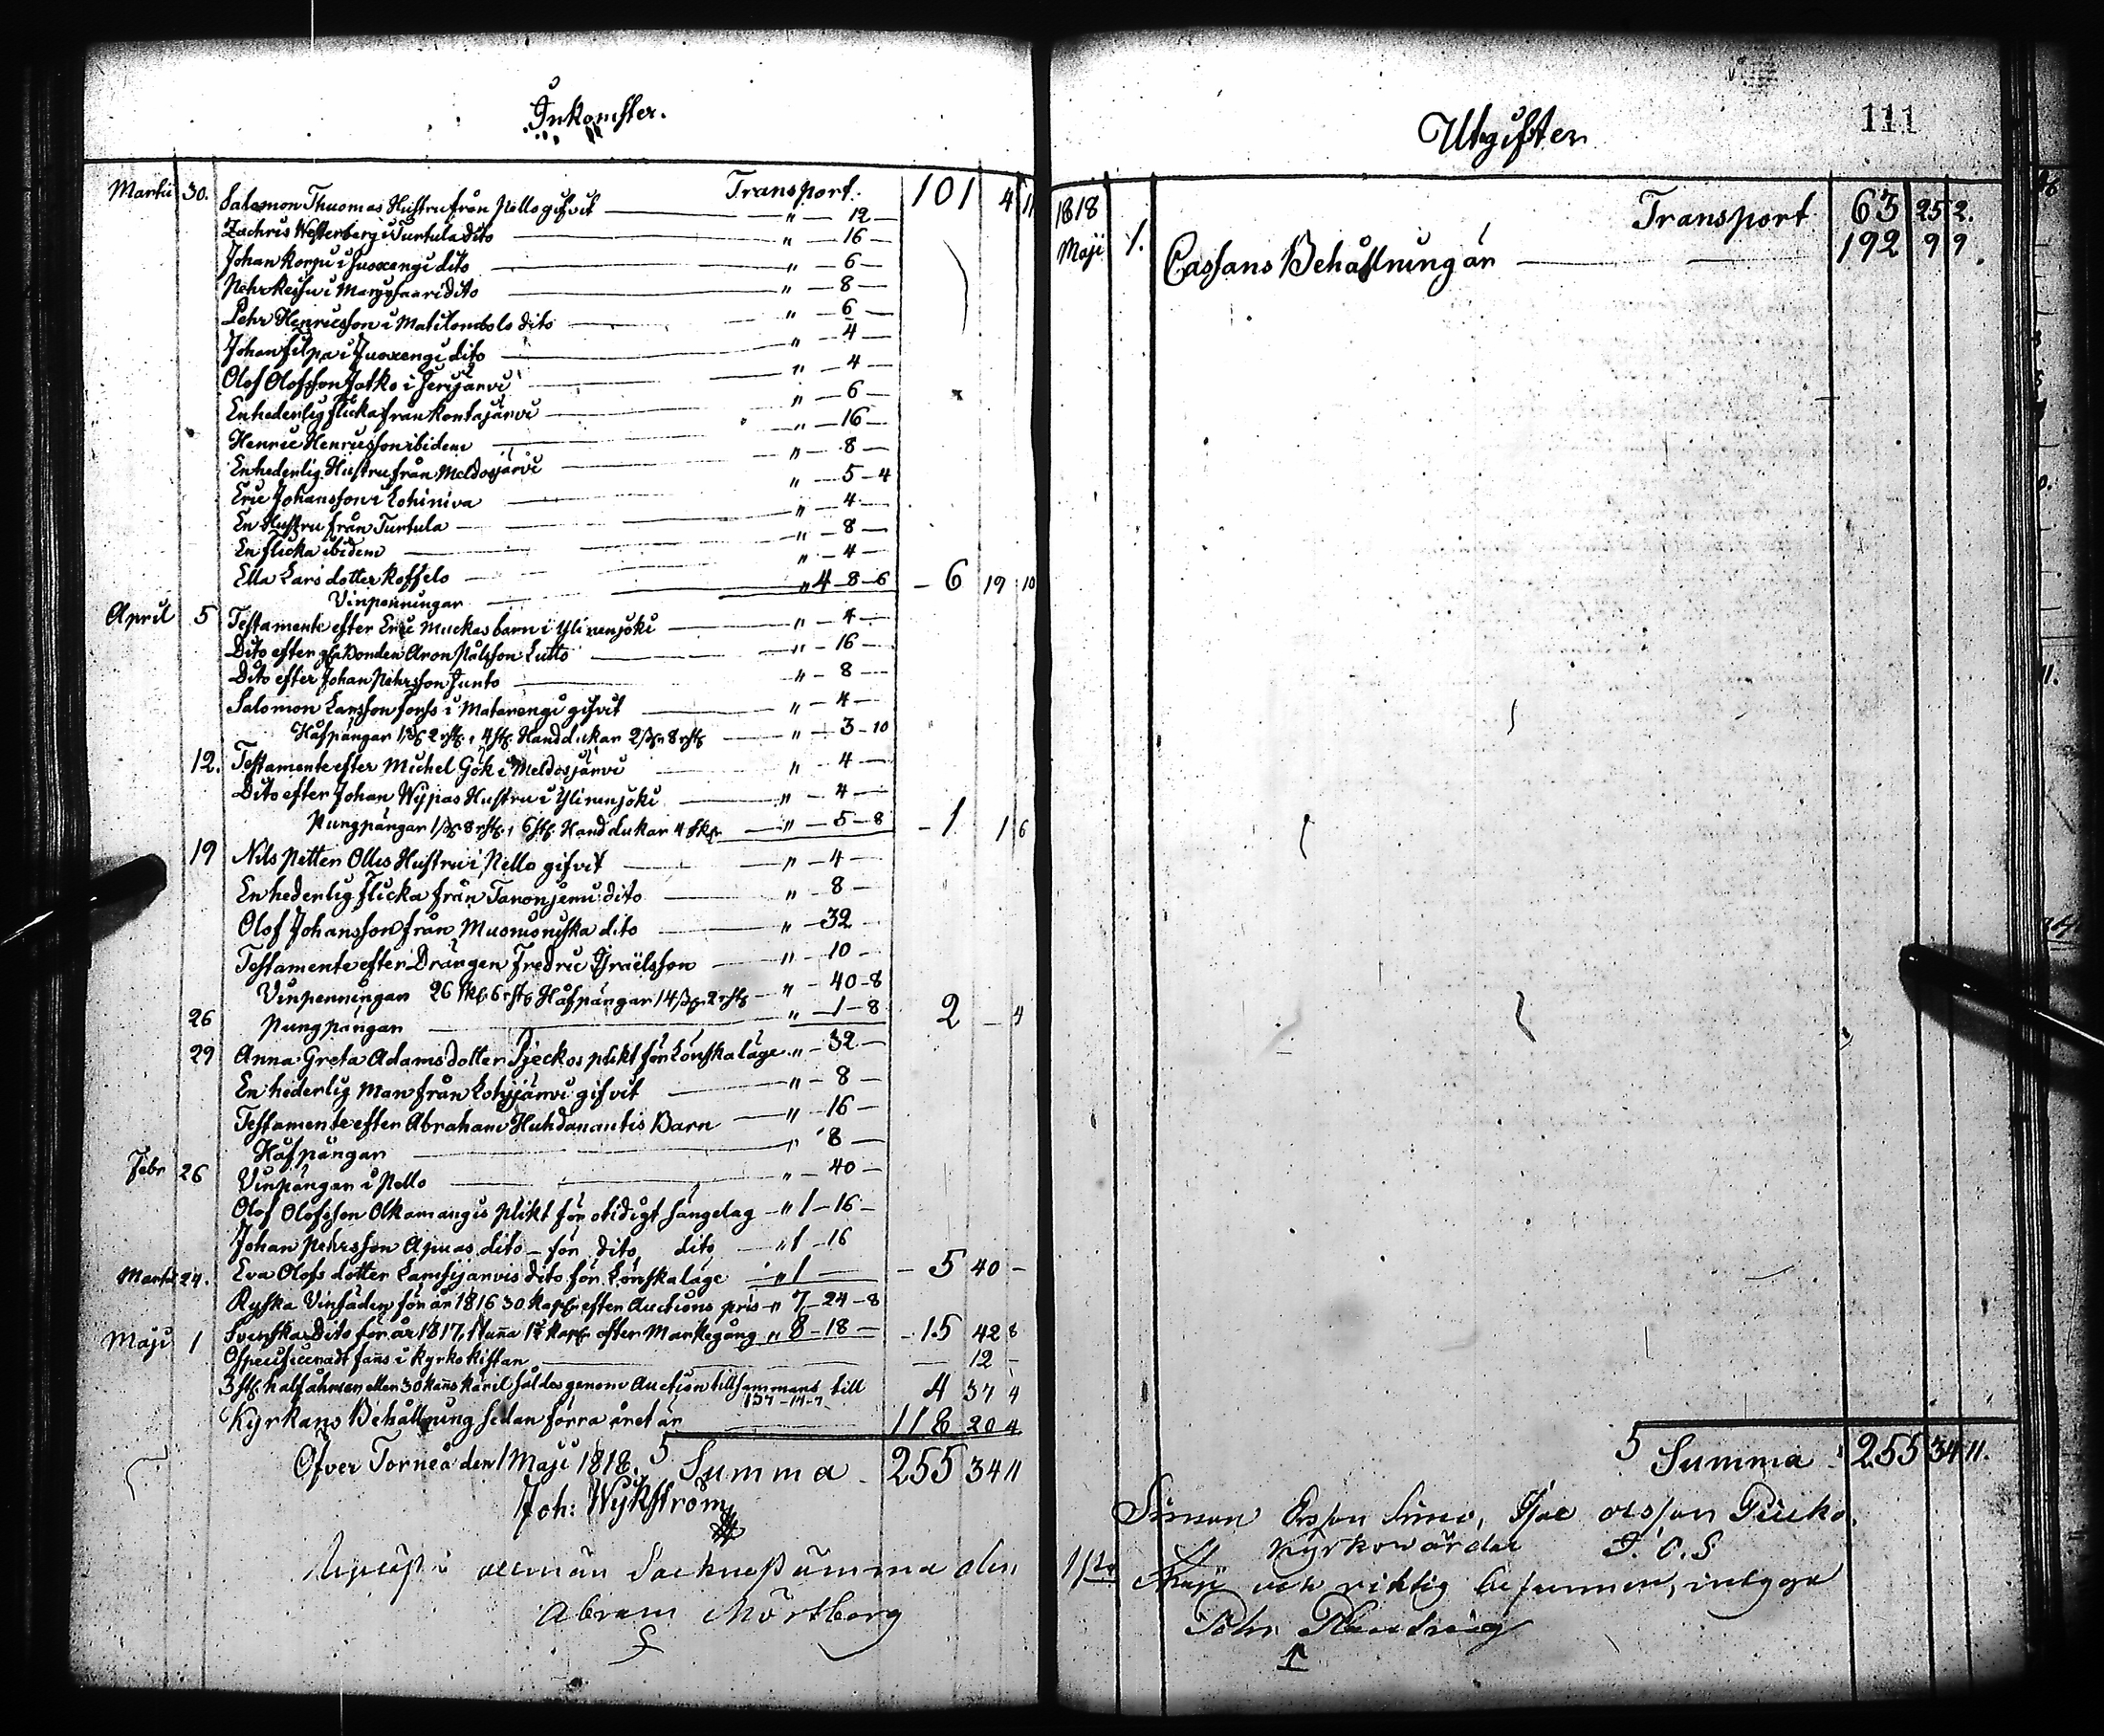 Inkomster.
Martii 30. Transport. 101 4 11
Salomon Thuomas Hustru från Pello gifvit " 12
Zachris Westerberg i Turtula dito " 16
Johan Korpi i Juoxengi dito " 6
Pehr Keisu i Marjosaari dito " 8
Pehr Henricsson i Matilombolo dito " 6
Johan Filpa i Juoxengi dito " 4
Olof Olofsson Jatko i Jerijärvi " 4
En hederlig flicka från Kontajärvi " 6
Henric Henricsson ibidem " 16
En hederlig Hustru från Meldosjärvi " 8
Eric Johansson i Lohiniva " 5 - 4
En Hustru från Turtula " 4
En flicka ibidem " 8
Ella Lars dotter Koffelo " 4
Vinpenningar " 4 - 8 - 6 - 6 19 10
April 5 Testamente efter Eric Muckas barn i Ylinenjoki " 4
Dito efter gla Bonden Aron Pålsson Lutto " 16
Dito efter Johan Pehrsson Junto " 8
Salomon Larsson i Matarengi gifvit " 4
Håfpängar 1 2 rst, 4 st. Handdukar 2 8 rst " 3 - 10
12. Testamente efter Michel Gök i Meldosjärvi " 4
Dito efter Johan Wypas Hustru i Ylinenjoki " 4
Pungpängar 1 8 rst, 6 st. Handdukar 4 sk " 5 - 8 - 1 1 6
19 Nils Petter Ollis Hustru i Pello gifvit " 4
En hederlig flicka från Tanonjemi dito " 8
Olof Johansson från Muonioniska dito " 32
Testamente efter Drängen Fredric Israëlsson " 10
Vinpenningar 26 sk 6 rst Håfpängar 14 2 rst " 40 - 8
26 Pungpängar " 1 - 8 2 - 4
29 Anna Greta Adamsdotter Pjeckos plikt för Lönskaläge " 32
En hederlig Man från Lohijärvi gifvit " 8
Testamente efter Abraham Huhdanantis Barn " 16
Håfpängar " 8
Febr 26 Vinpängar i Pello " 40
Olof Olofsson Alkamangis plikt för otidigt sängelag " 1 - 16
Johan Pehrsson Apuas dito för dito dito " 1 - 16
Martii 24. Eva Olofs dotter Lamsijärvis dito för Lönskaläge " 1 - 5 40 -
Ryska Vinsäden för år 1816 30 kapp efter Auctions pris " 7 - 24 - 8
Maji 1 Svenska Dito för år 1817, 1 tunna 1½ kapp efter Markegång " 8 - 18 - 15 42 8
Ospecificeradt fanns i Kyrko kistan 12 -
3 st. halfåhmen eller 30 kanns käril såldes genom Auction tillsammans till 4 37 4
137 - 14 - 7
Kyrkans Behållning sedan förra året är 118 20 4
Öfver Torneå den 1 Maji 1818. Summa 255 34 11
Joh: Wykström
allmän Socknestämma den
Abram Mörtberg
111
Utgifter
1818 Transport 63 25 2.
Maji 1. Cassans Behållning är 192 9 9
Summa 255 34 11.
Simon Ersson Simo, Isac Olsson
Kyrkowärdar I. O. S
Maji och riktig befunnen, intyga
Pehr